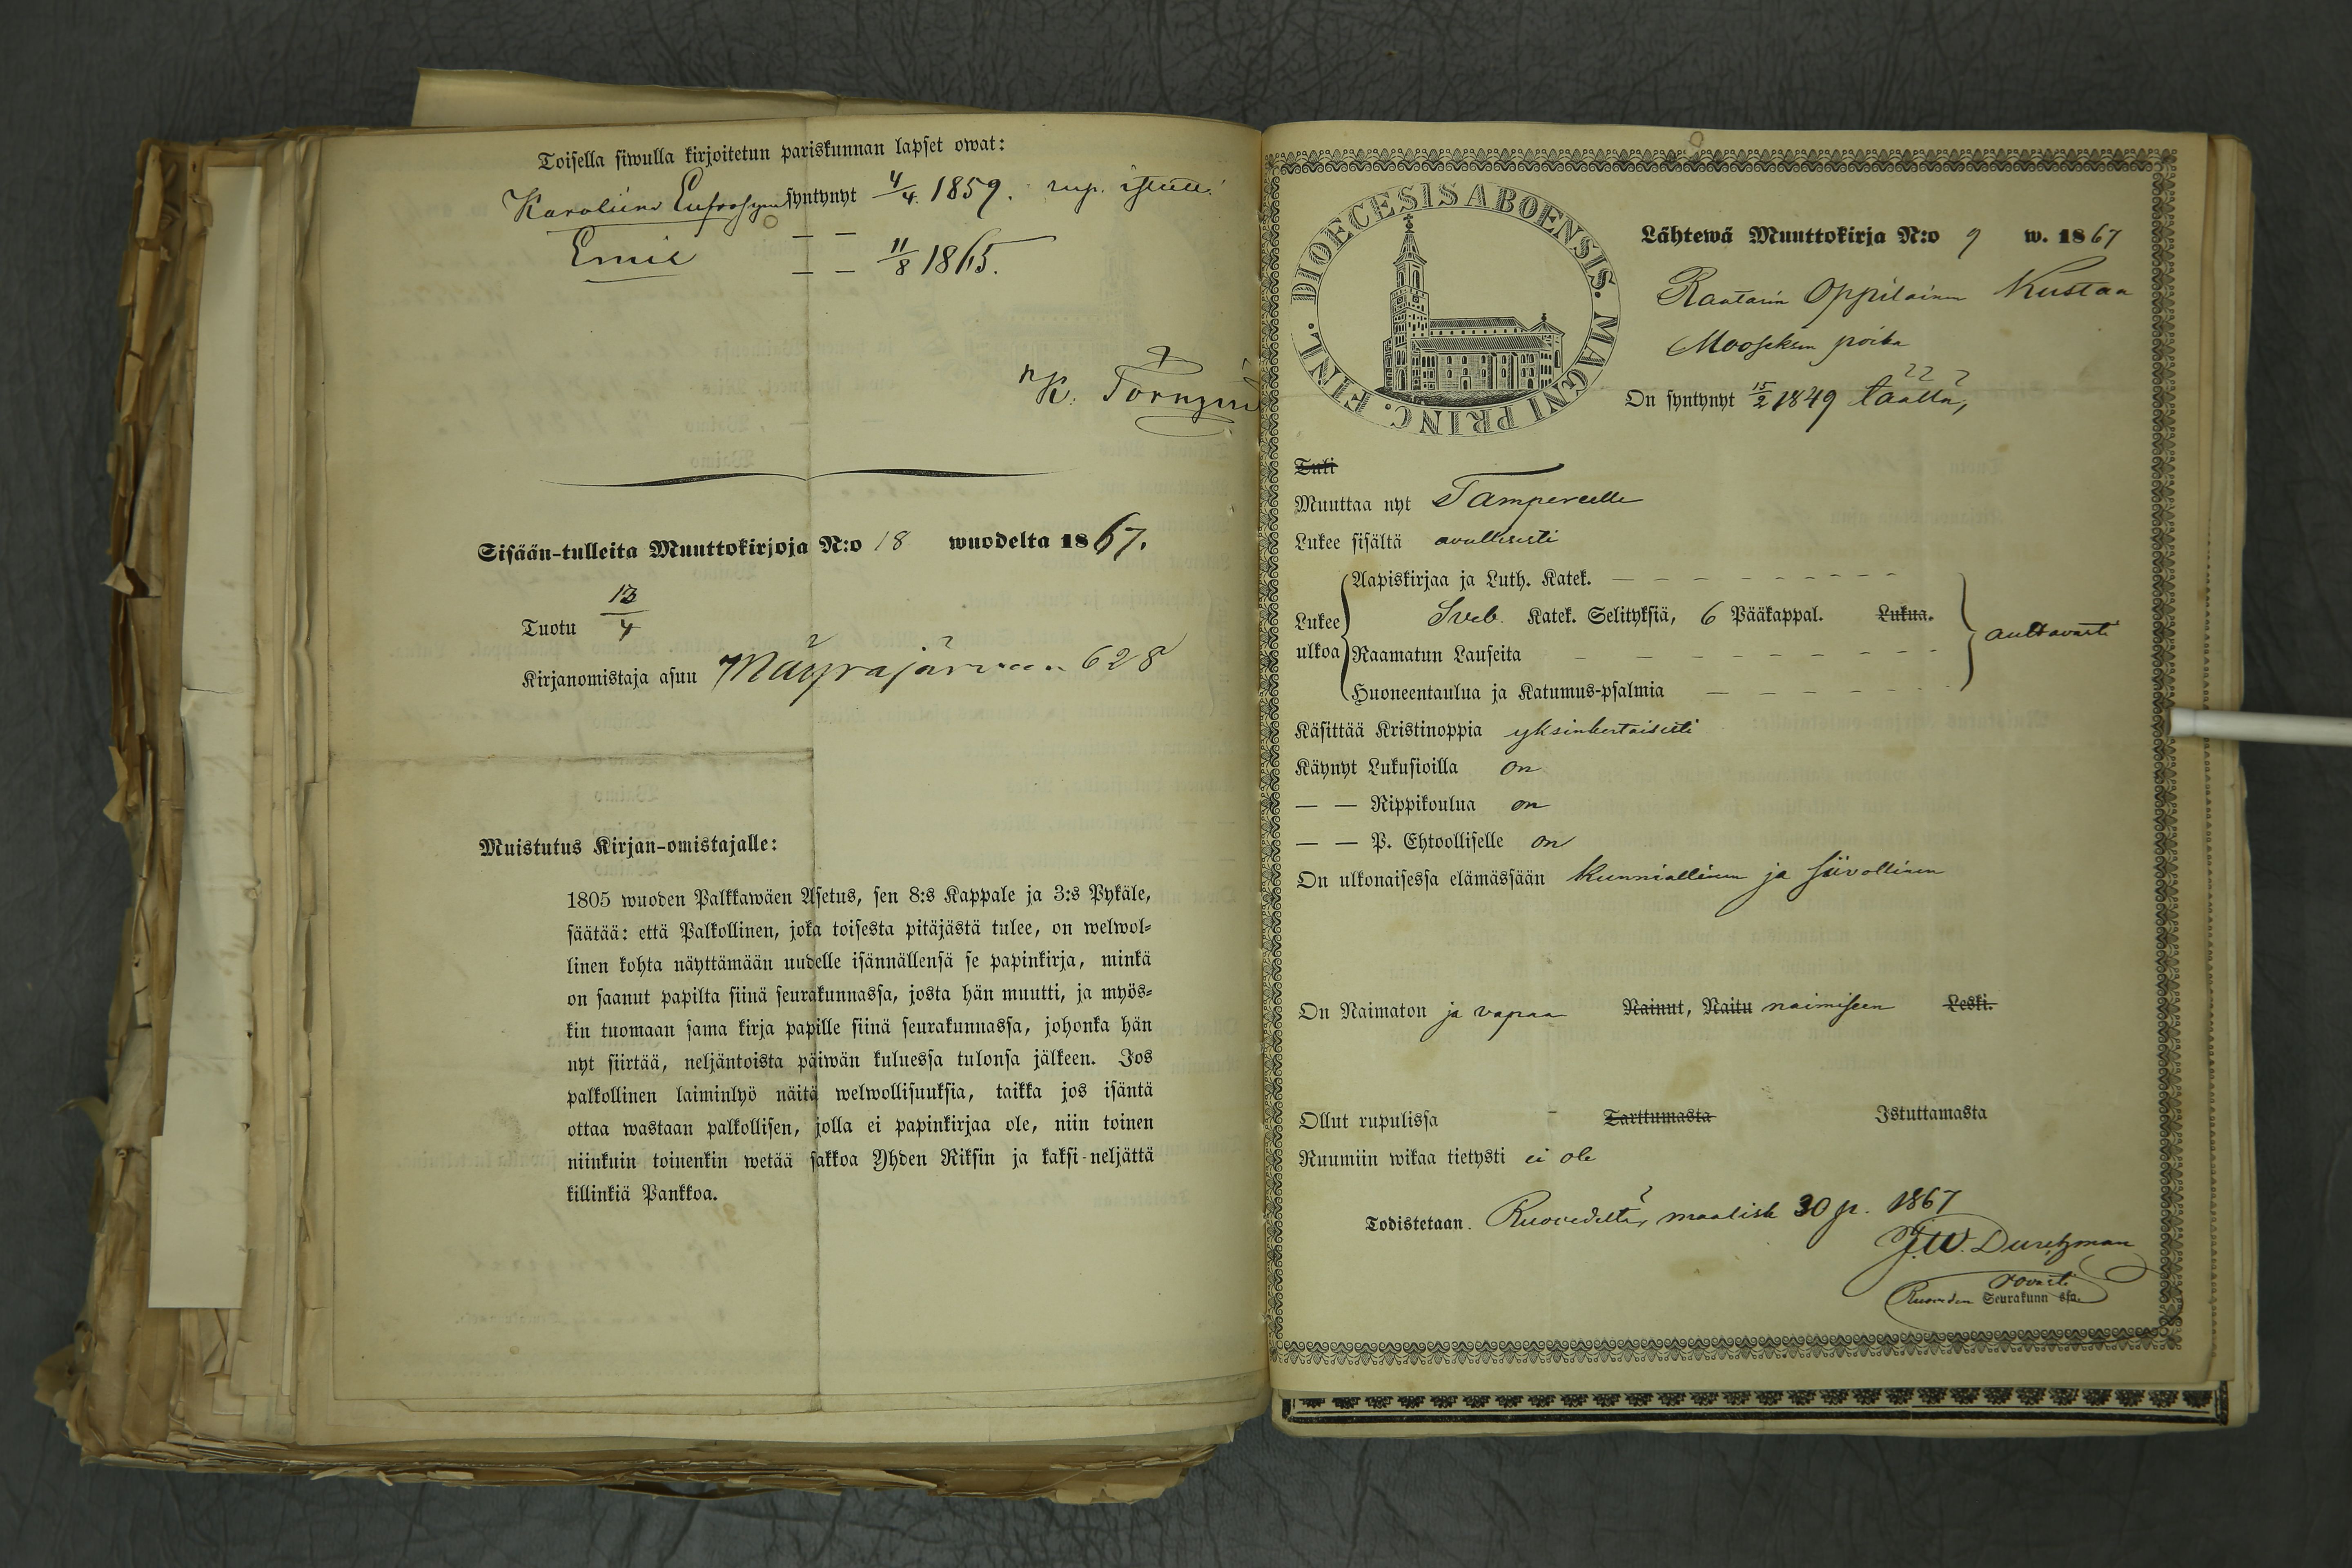 Toisella siwulla kirjoitetun pariskunnan lapset owat:
Karoliina Eufrosyna syntynyt 4/4 1859. rup. istutt.
Emil — — 11/8 1865.
— —
K. Tornqvist
Sisään-tulleita Muuttokirjoja N:o 18 wuodelta 1867.
Tuotu 13/4
Kirjanomistaja asuu 628
Muistutus Kirjan-omistajalle:
1805 wuoden Palkkawäen Asetus, sen 8:s Kappale ja 3:s Pykäle,
säätää: että Palkollinen, joka toisesta pitäjästä tulee, on welwol-
linen kohta näyttämään uudelle isännällensä se papinkirja, minkä
on saanut papilta siinä seurakunnassa, josta hän muutti, ja myös-
kin tuomaan sama kirja papille siinä seurakunnassa, johonka hän
nyt siirtää, neljäntoista päiwän kuluessa tulonsa jälkeen. Jos
palkollinen laiminlyö näitä welwollisuuksia, taikka jos isäntä
ottaa wastaan palkollisen, jolla ei papinkirjaa ole, niin toinen
niinkuin toinenkin wetää sakkoa Yhden Riksin ja kaksi-neljättä
killinkiä Pankkoa.
DIOECESIS ABOENSIS. MAGNI PRINC. FINL.
Lähtewä Muuttokirja N:o 9 w. 1867
Raatarin Oppilainen Kustaa
Mooseksen poika
On syntynyt 15/2 1849 täällä,
Tuli
Muuttaa nyt Tampereelle
Lukee sisältä avullisesti
Lukee ulkoa
Aapiskirjaa ja Luth. Katek. — — — — — — — — —
Sveb. Katek. Selityksiä, 6 Pääkappal. Lukua.
Raamatun Lauseita — — — — — — — — —
Huoneentaulua ja Katumus-psalmia — — — — — — —
auttavasti
Käsittää Kristinoppia yksinkertaisesti
Käynyt Lukusioilla on
— — Rippikoulua on
— — P. Ehtoolliselle on
On ulkonaisessa elämässään kunniallinen ja siivollinen
On Naimaton ja vapaa Nainut, Naitu naimiseen Leski.
Ollut rupulissa - Tarttumasta Istuttamasta
Ruumiin wikaa tietysti ei ole
Todistetaan. Ruovedeltä, maalisk 30 p. 1867
J.W. Durchman
rovasti
Ruoveden Seurakunnassa